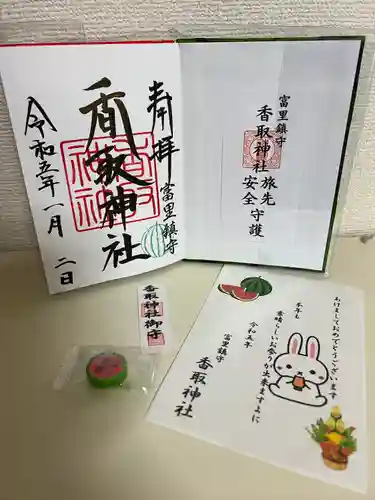 奉拝
富里鎮守
香取神社
令和五年一月二日
富里鎮守
香取神社
旅先
安全守護
香取神社御守
あけましておめでとうございます
本年も
素晴らしいお参りが出来ますように
令和五年
富里鎮守
香取神社